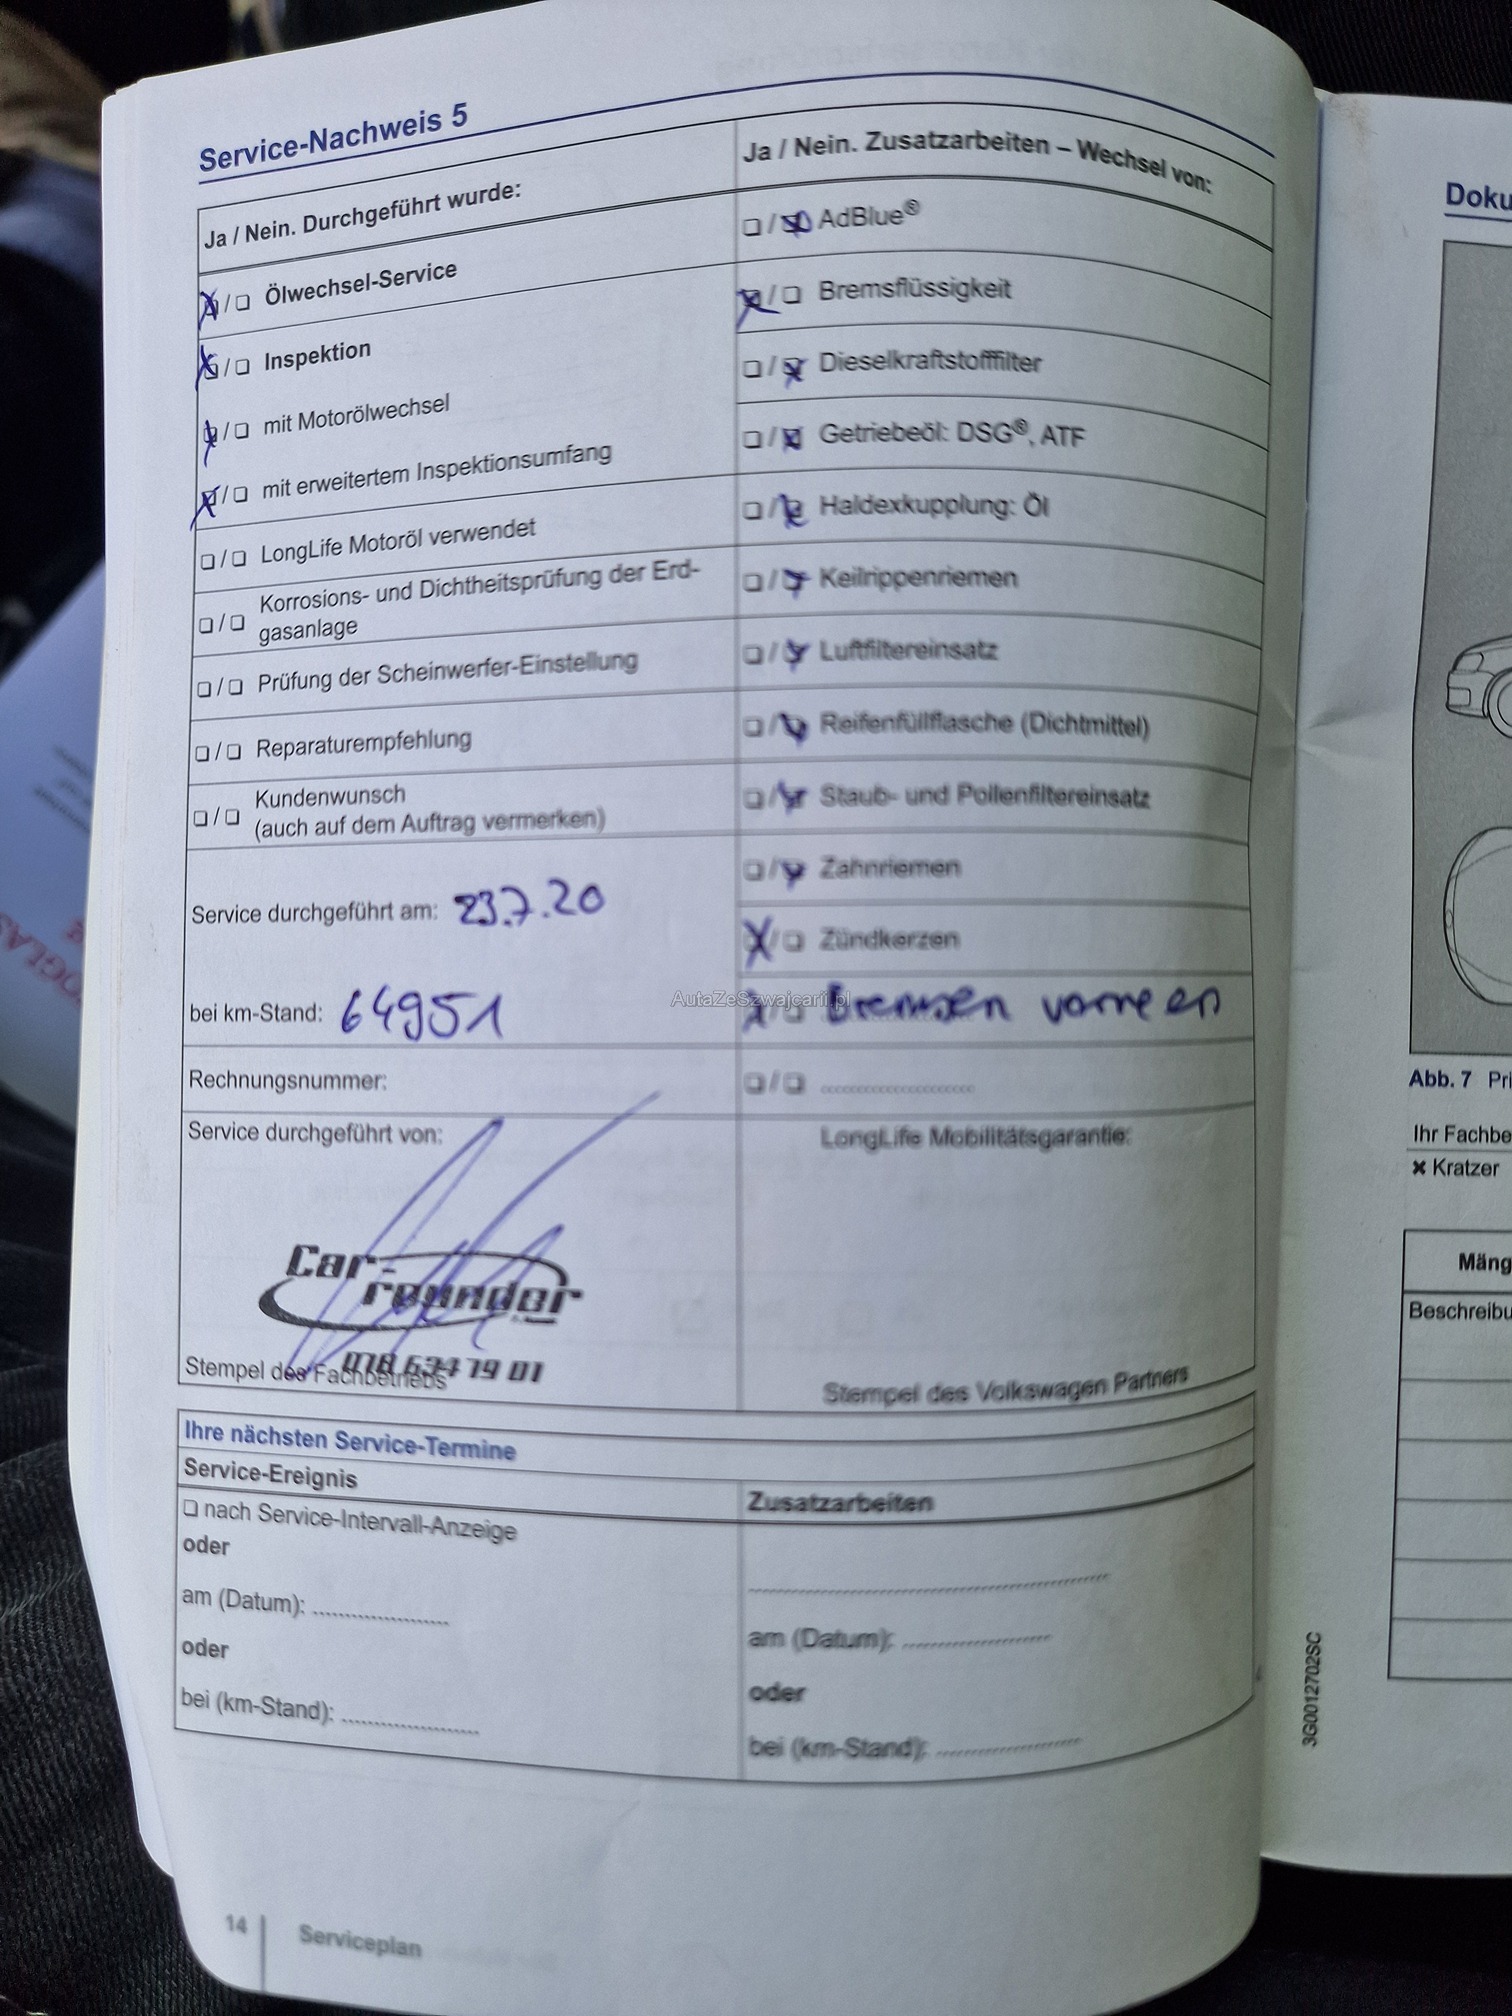 Service-Nachweis 5
Ja / Nein. Durchgeführt wurde:
Ölwechsel-Service
Inspektion
mit Motorölwechsel
mit erweitertem Inspektionsumfang
LongLife Motoröl verwendet
Korrosions- und Dichtheitsprüfung der Erd-
gasanlage
Prüfung der Scheinwerfer-Einstellung
Reparaturempfehlung
Kundenwunsch
(auch auf dem Auftrag vermerken)
Service durchgeführt am: 23.7.20
bei km-Stand: 64951
Rechnungsnummer:
Service durchgeführt von:
Car-
rounder
078 634 79 01
Stempel des Fachbetriebs
Ja / Nein. Zusatzarbeiten – Wechsel von:
AdBlue®
Bremsflüssigkeit
Dieselkraftstofffilter
Getriebeöl: DSG®, ATF
Haldexkupplung: Öl
Keilrippenriemen
Luftfiltereinsatz
Reifenfüllflasche (Dichtmittel)
Staub- und Pollenfiltereinsatz
Zahnriemen
Zündkerzen
Bremsen vorne
AutaZeSzwajcarii.pl
LongLife Mobilitätsgarantie:
Stempel des Volkswagen Partners
Ihre nächsten Service-Termine
Service-Ereignis
nach Service-Intervall-Anzeige
oder
am (Datum):
oder
bei (km-Stand):
Zusatzarbeiten
am (Datum):
oder
bei (km-Stand):
14
Serviceplan
3G0012702SC
Abb. 7
Kratzer